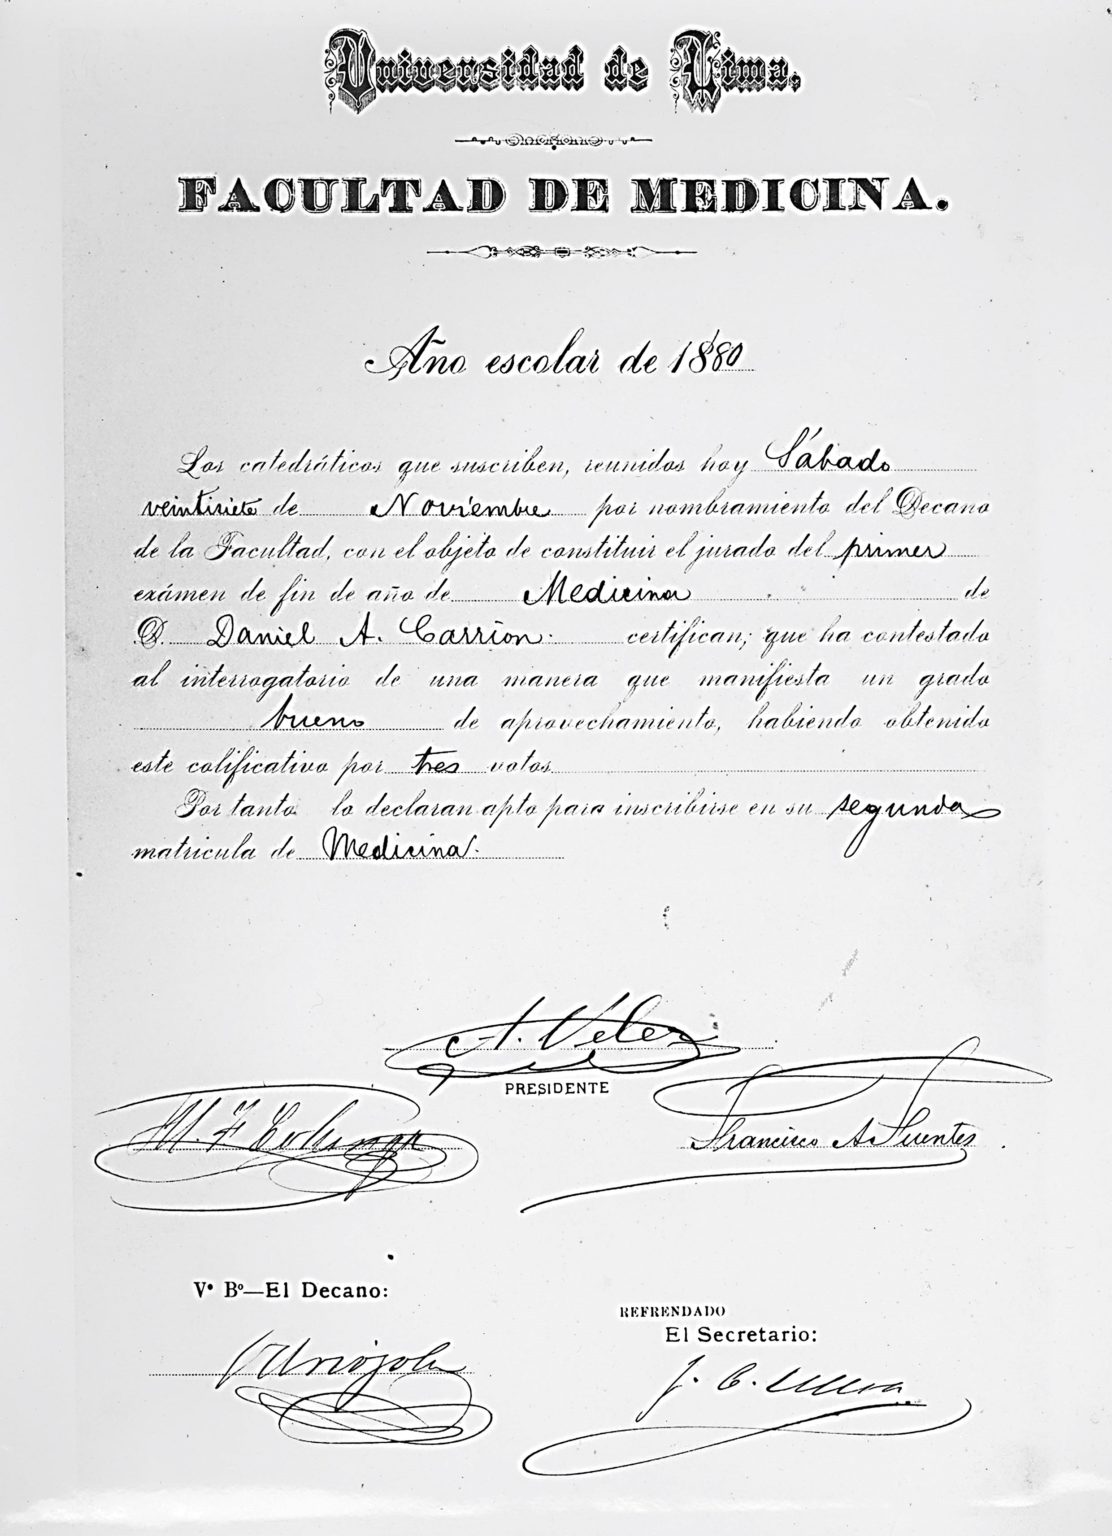 Universidad de Lima.
FACULTAD DE MEDICINA.
Año escolar de 1880
Los catedráticos que suscriben, reunidos hoy Sábado
veintisiete de Noviembre por nombramiento del Decano
de la Facultad, con el objeto de constituir el jurado del primer
exámen de fin de año de Medicina de
D. Daniel A. Carrion. certifican; que ha contestado
al interrogatorio de una manera que manifiesta un grado
bueno de aprovechamiento, habiendo obtenido
este calificativo por tres votos
Por tanto lo declaran apto para inscribirse en su segunda
matricula de Medicina.
A. Velez
PRESIDENTE
M. F.
Francisco A. Fuentes
Vº Bº—El Decano:
REFRENDADO
El Secretario:
Odriozola
J. C. Ulloa